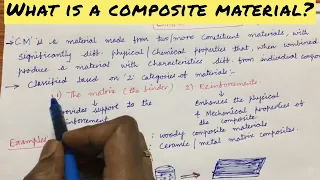 What is a composite material?
'CM' is a material made from two/more constituent materials, with
significantly diff. physical/chemical properties that, when combined
produce a material with characteristics diff. from individual compon
→ Classified based on '2' categories of materials:-
1) The matrix (the binder) 2) Reinforcements
provides support to the
reinforcement
Enhances the physical
& Mechanical properties of
the composite
Examples
: woody composite materials
: Ceramic/metal matrix composites.